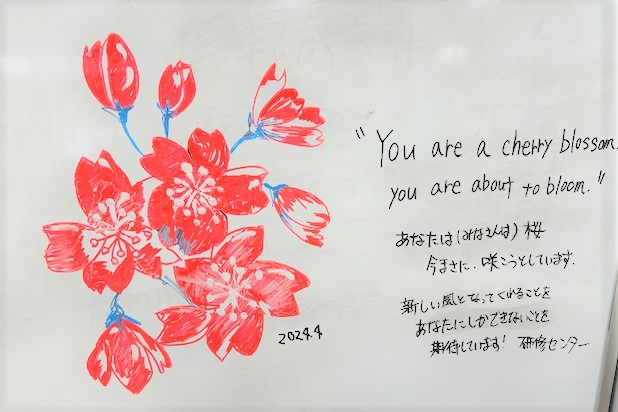 "You are a cherry blossom.
you are about to bloom."
あなたは(みなさんは)桜
今まさに、咲こうとしています.
新しい風となってくれることを
あなたにしかできないことを
期待しています! 研修センター
2024.4